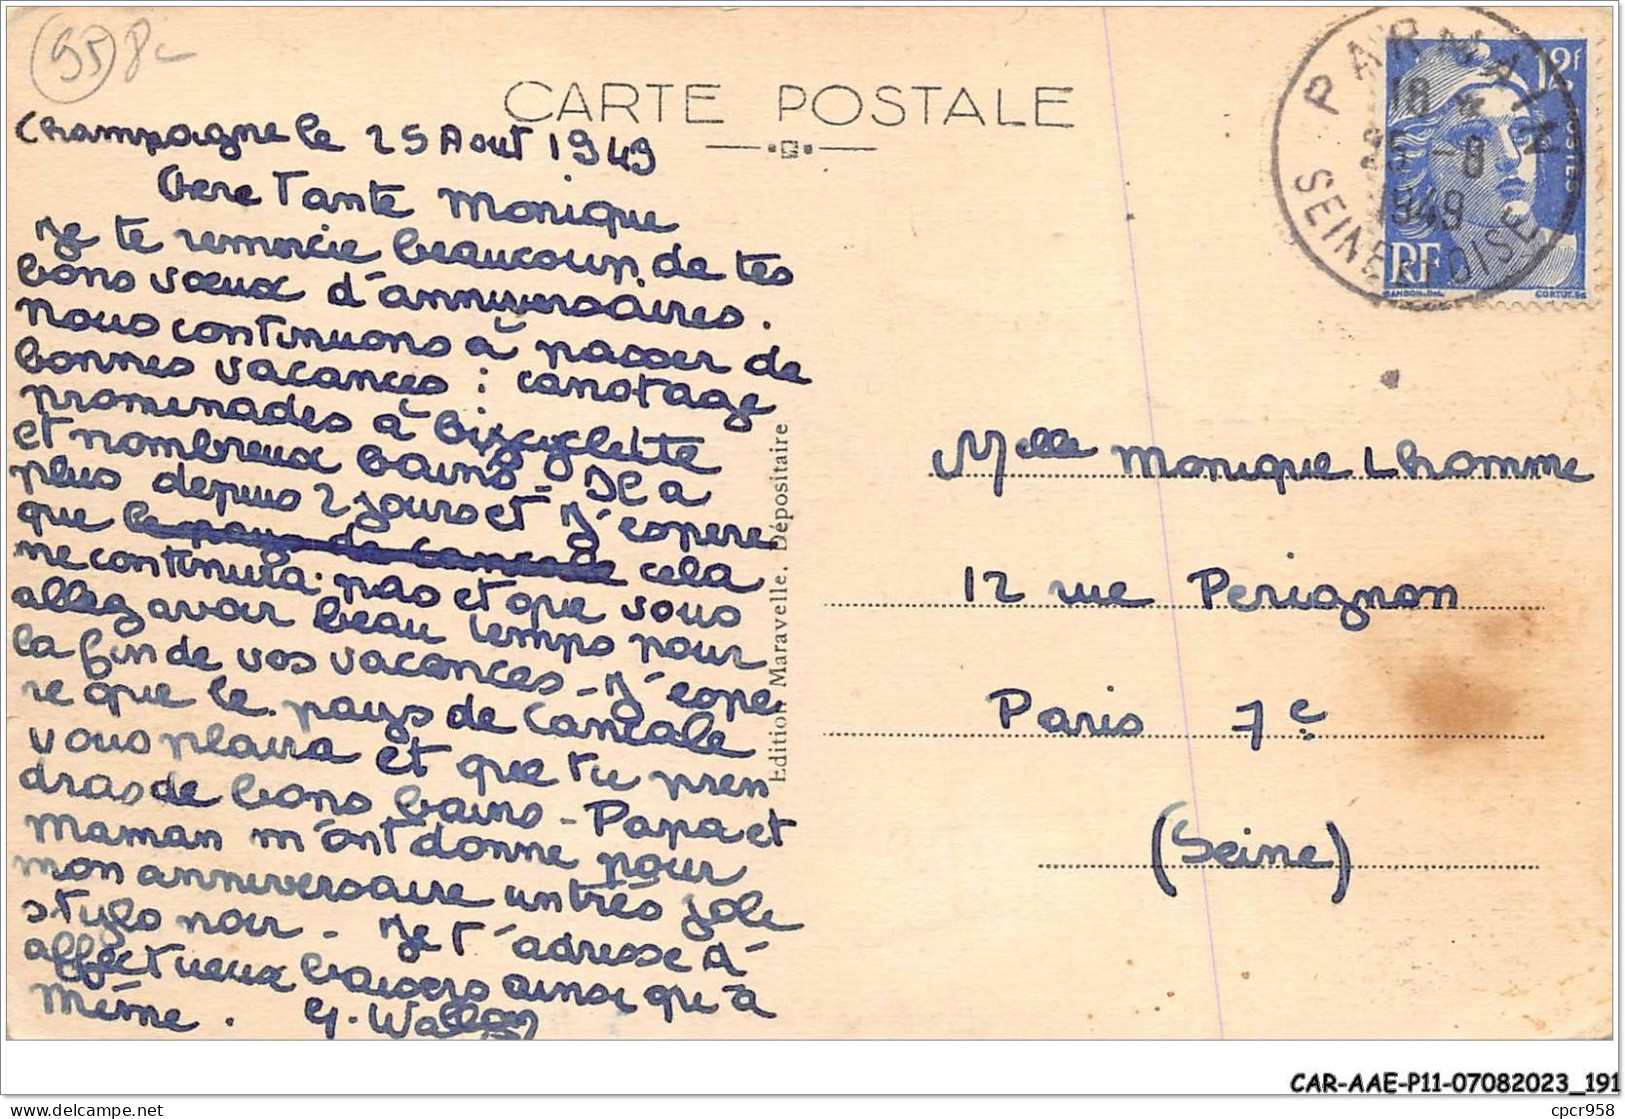 95 8c
CARTE POSTALE
Champagne le 25 Aout 1949
Chere Tante Monique
Je te remercie beaucoup de tes
bons voeux d'anniversaires.
nous continuons à passer de
bonnes vacances : canotage
promenades à bicyclette
et nombreux bains - Il a
plus depuis 2 jours et J'espere
que le pays de Cancale cela
ne continura pas et que vous
allez avoir beau temps pour
la fin de vos vacances - J'espe
re que le pays de Cancale
vous plaira et que tu pren
dras de bons bains - Papa et
maman m'ont donne pour
mon anniversaire un très joli
stylo noir - Je t'adresse d'
affectueux baisers ainsi qu'à
Mème. G. Wallon
Edition Maravelle, Dépositaire
PARMAIN
18 *
25 -8
1949
SEINE & OISE
12f
POSTES
RF
GANDON.DEL
CORTOT.SC
Melle Monique Lhomme
12 rue Perignon
Paris 7e
(Seine)
CAR-AAE-P11-07082023_191
cpcr958